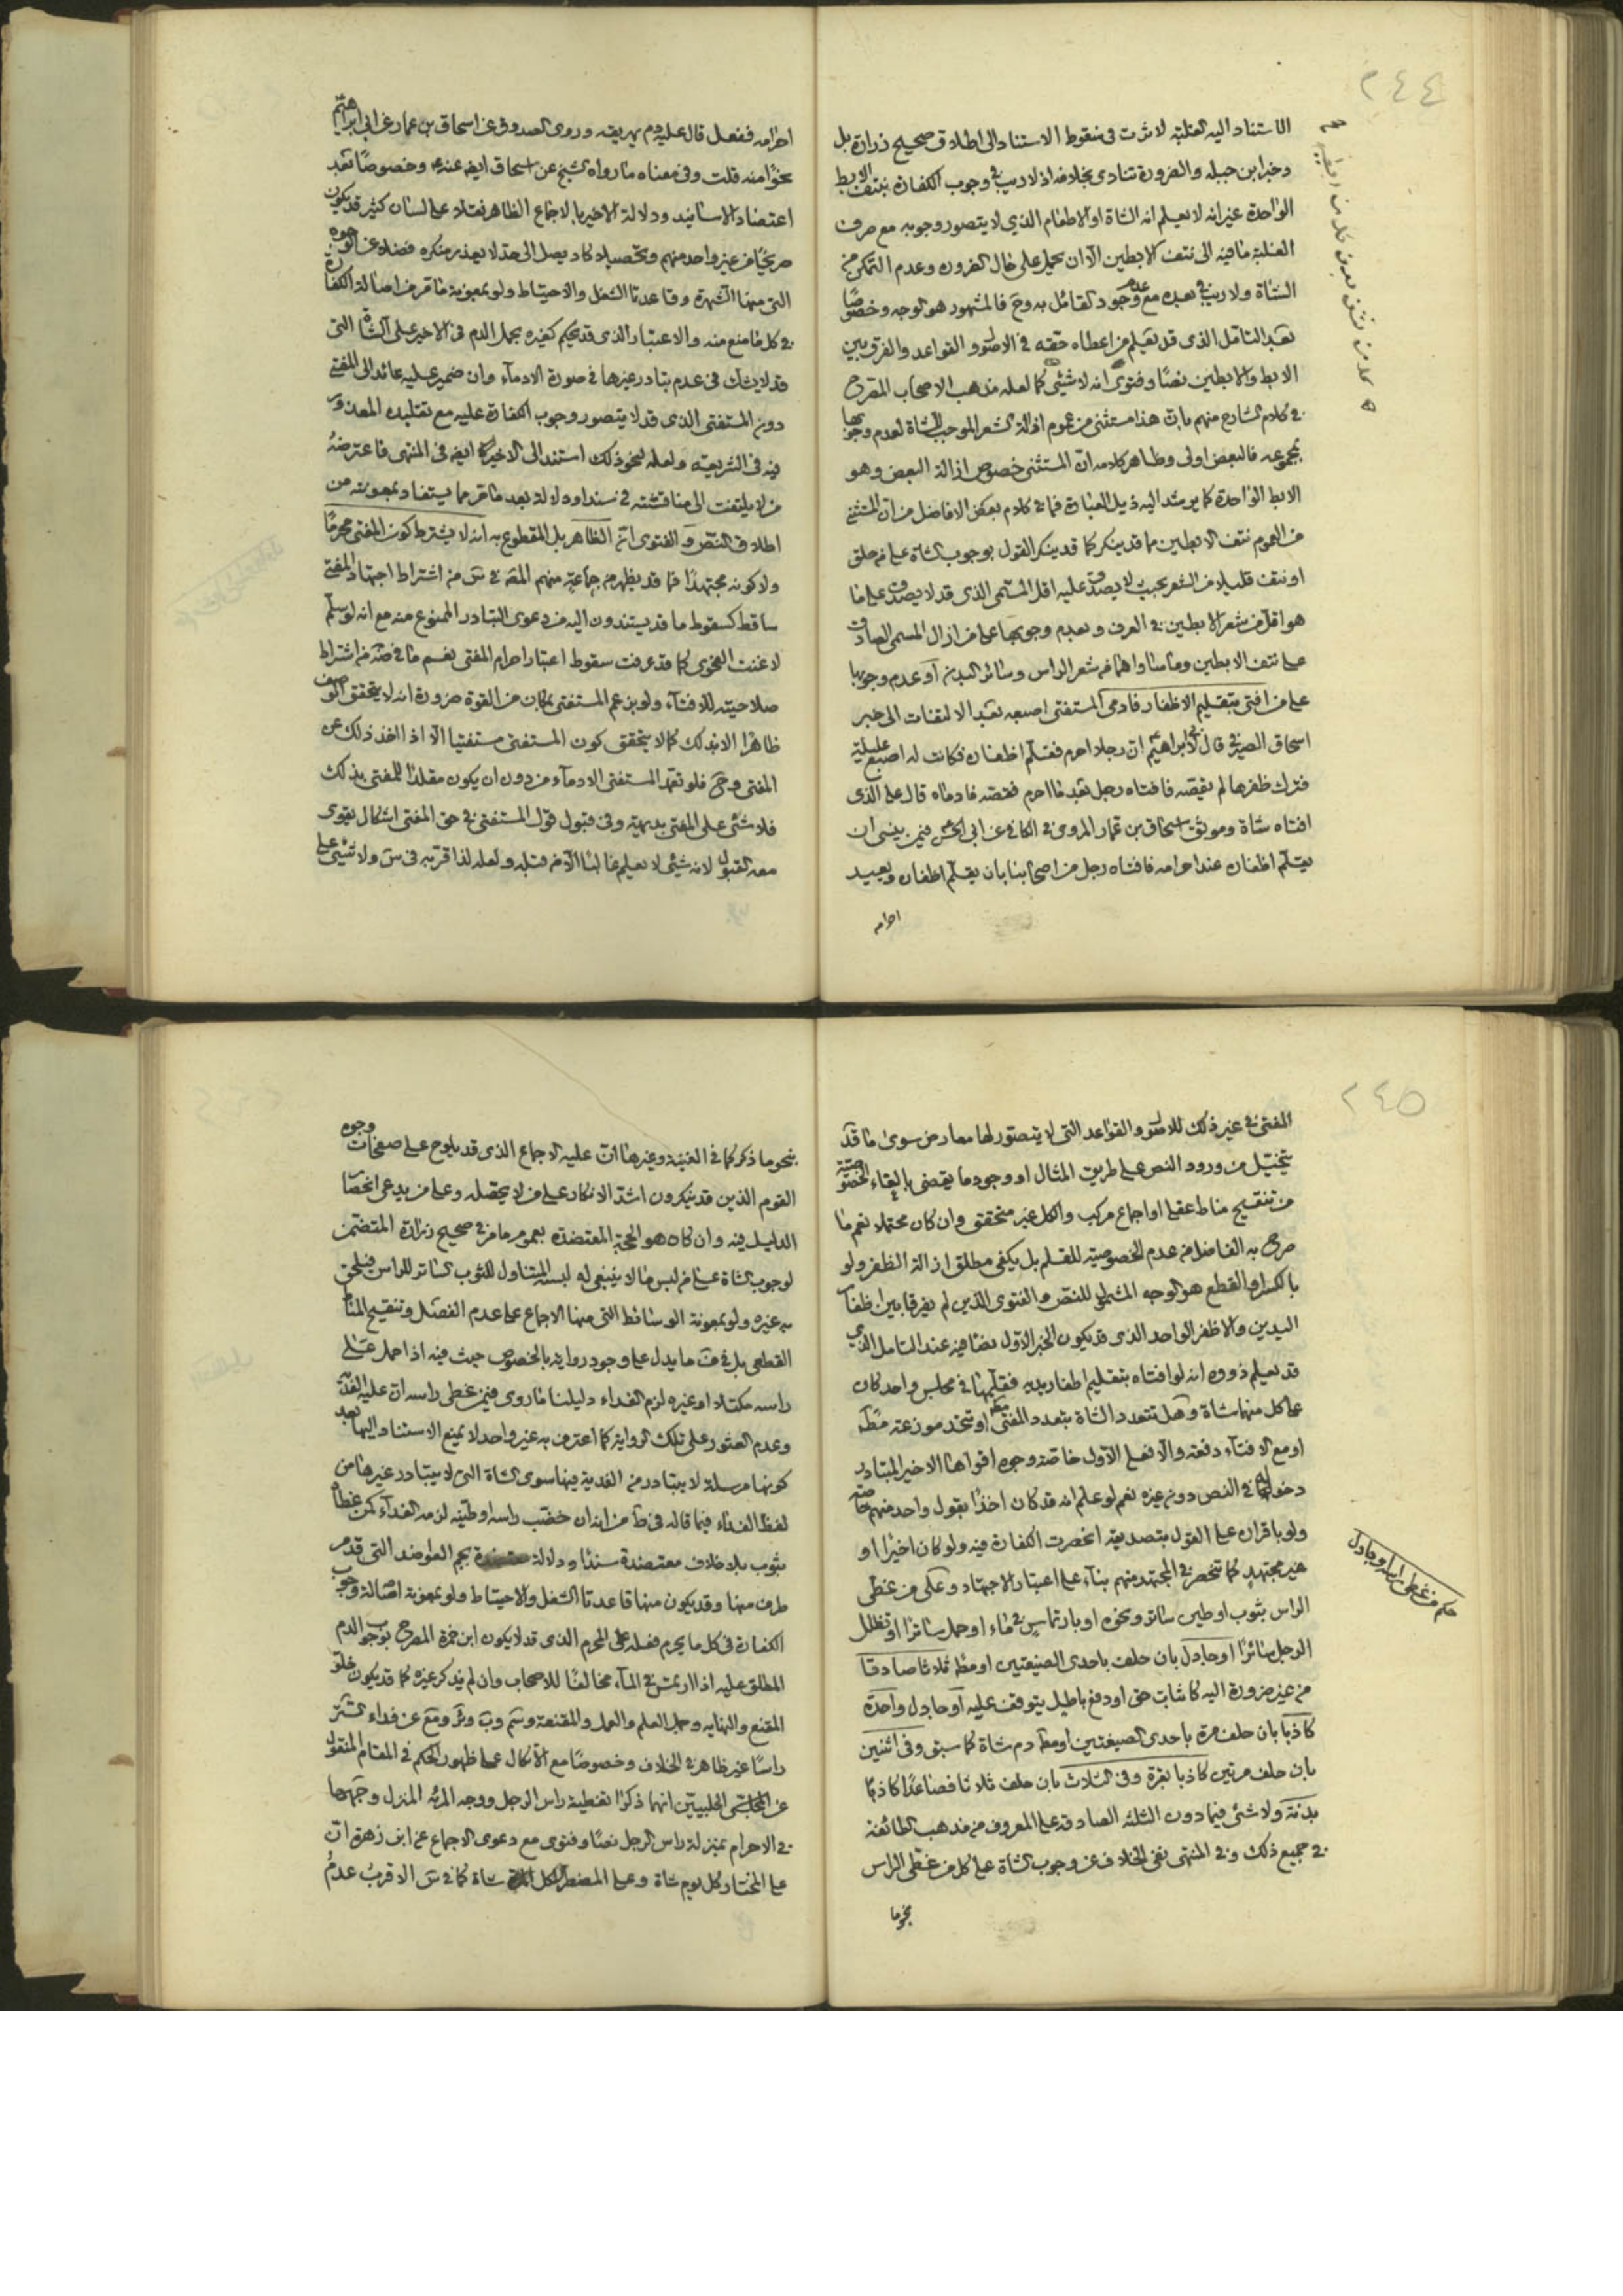 ٢٤٤
الاستناد اليه الغلبة لا ثمرت فى سقوط الاستناد الى اطلاق صحيح زرارة بل
وخبر ابن جبله والضرورة تنادى بخلافه اذ لا ريب فى وجوب الكفارة بنتف الابط
الواحدة غير انه لا يعلم انه الشاة او الاطعام الذي لا يتصور وجوبه مع صرف
الغلبة ما فيه الى نتف الابطين الا ان يحمل على حال الضرورة وعدم التمكن من
الشاة ولا ريب فى بعده مع عدم وجود القائل به وح فالمشهور هو الوجه وخصوصًا
بعد التامل الذى قد يعلم من اعطاه حقه فى الاصول والقواعد والفرق بين
الابط والابطين نصًا وفتوى انه لا شئى كما لعله مذهب الاصحاب المصرح
فى كلام الشارح منهم بان هذا مستثنى من عموم ازالة الشعر الموجب للشاة لعدم وجوبها
بمجموعه فالبعض اولى وظاهر كلامه ان المستثنى خصوص ازالة البعض وهو
الابط الواحدة كما يرشد اليه ذيل العبارة فما فى كلام بعض الافاضل من ان المستثنى
من العموم نتف الابطين مما قد ينكر كما قد ينكر القول بوجوب الشاة على من حلق
او نتف قليلا من الشعر بحيث لا يصدق عليه اقل المسمى الذى قد لا يصدق على ما
هو اقل من شعر الابطين فى العرف وبعدم وجوبها على من ازال المسمى الصادق
على نتف الابطين وما ساواهما من شعر الراس وسائر البدن او عدم وجوبها
على من افتى بتقليم الاظفار فادمى المستفتى اصبعه بعد الالتفات الى خبر
اسحاق الصيرفى قال لابى ابراهيم ان رجلا احرم فقلم اظفاره فكانت له اصبع عليلة
فترك ظفرها لم يقصه فافتاه رجل بعد ما احرم فقصه فادماه قال على الذى
افتاه شاة وموثق اسحاق بن عمار المروى فى الكافى عن ابى الحسن فيمن ينسى ان
يقلم اظفاره عند احرامه فافتاه رجل من اصحابنا بان يقلم اظفاره ويعيد
احرامه
احرامه ففعل قال عليه دم يهريقه وروى الصدوق عن اسحاق بن عمار عن ابى ابراهيم
نحوًا منه قلت وفى معناه ما رواه الشيخ عن اسحاق ايضا عنه وخصوصًا بعد
اعتضاد الاسانيد ودلالة الاخير بالاجماع الظاهر نقلا على لسان كثير قد يكون
صريحًا من غير واحد منهم وتحصيلا كاد يصل الى حد لا يعذر منكره فضلا عن الوجوه
التى منها الشهرة وقاعدتا الشغل والاحتياط ولو بمعونة ما قرر من اصالة الكفارة
فى كل ما منع منه والاعتبار الذى قد يحكم كغيره بحمل الدم فى الاخير على الشاة التى
قد لا يشك فى عدم تبادر غيرها فى صورة الادماء وان ضمير عليه عائد الى المفتى
دون المستفتى الذى قد لا يتصور وجوب الكفارة عليه مع تقليده المعذور
فيه فى الشريعة ولعله لنحو ذلك استند الى الاخير كا ايضا فى المنتهى فاعترضه
من لا يلتفت الى مناقشته فى سندا ودلالة بعد ما قر مما يستفاد بمعونته من
اطلاق النص والفتوى اتم الظاهر بل المقطوع به انه لا يشترط كون المفتى محرمًا
ولا كونه مجتهدًا فما قد يظهر من جماعة منهم المصنف فى س من اشتراط اجتهاد المفتى
ساقط كسقوط ما قد يستندون اليه من دعوى التبادر الممنوع منه مع انه لو سلم
لاغنت الفحوى كما قد عرفت سقوط اعتبار احرام المفتى بقسم ما فى ضه من اشتراط
صلاحيته للافتاء ولو بزعم المستفتى بمكان من القوة ضرورة انه لا يتحقق الوصف
ظاهرًا الا بذلك كما لا يتحقق كون المستفتى مستفتيا الا اذا اخذ ذلك عن
المفتى وح فلو تعمد المستفتى الادماء من دون ان يكون مقلدًا للمفتى بذلك
فلا شئى على المفتى بديهية وفى قبول قول المستفتى فى حق المفتى اشكال يقوى
معه القبول لانه شئى لا يعلم غالبًا الا من قبله ولعله لذا قربه فى س ولا شئى على
٢٤٥
المفتى فى غير ذلك للاصول والقواعد التى لا يتصور لها معارض سوى ما قد
يتخيل من ورود النص على طريق المثال او وجود ما يقضى بالغاء الخصوصية
من تنقيح مناط عقلى او اجماع مركب والكل غير متحقق وان كان محتملا نعم ما
صرح به الفاضل من عدم الخصوصية للقلم بل يكفى مطلق ازالة الظفر ولو
بالكسر او القطع هو الوجه المشمول للنص والفتوى الذين لم يفرقا بين اظفار
اليدين والاظفر الواحد الذى قد يكون الخبر الاول نصًا فيه عند التامل الذي
قد يعلم ذووه انه لو افتاه بتقليم اظفار يديه فقلمها فى مجلس واحد كان
على كل منها شاة وهل تتعدد الشاة بتعدد المفتى مطلقا او تتحد موزعة مطلقا
او مع الافتاء دفعة والا فعلى الاول خاصة وجوه اقواها الاخير المتبادر
دخولها فى النص دون غيره نعم لو علم انه قد كان اخذًا بقول واحد منهم خاصة
ولو باقراره على القول بتصديقه انحصرت الكفارة فيه ولو كان اخيرًا او
غير مجتهد كما تنحصر فى المجتهد منهم بناء على اعتبار الاجتهاد وعلى من غطى
الراس بثوب او طين ساتر ونحوه او بارتماس فى ماء او حمل ساترًا او تظلل
الرجل سائرًا او جادل بان حلف باحدى الصيغتين او مطلقا ثلاثا صادقا
من غير ضرورة اليه كاثبات حق او دفع باطل يتوقف عليه او جادل واحدة
كاذبا بان حلف مرة باحدى الصيغتين او مطلقا دم شاة كما سبق وفى اثنين
بان حلف مرتين كاذبا بقرة وفى الثلاث بان حلف ثلاثا فصاعدًا كاذبًا
بدنة ولا شئى فيما دون الثلثه الصادقة على المعروف من مذهب الطائفة
فى جميع ذلك وفى المنتهى نفى الخلاف عن وجوب الشاة على كل من غطى الراس
حكم من غطى راسه او جادل
نحوما
بنحو ما ذكر كما فى الغنية وغيرها ان عليه الاجماع الذى قد يلوح على صفحات وجوه
القوم الذين قد ينكرون اشد الانكار على من لا يحصله وعلى من يدعى انحصار
الدليل فيه وان كان هو الحجة المعتضدة بعموم ما مر فى صحيح زرارة المتضمن
لوجوب الشاة على من لبس ما لا ينبغى له لبسه المتناول للثوب الساتر للراس فيلحق
به غيره ولو بمعونة الوسائط التى منها الاجماع على عدم الفصل وتنقيح المناط
القطعى بل فى ف ما يدل على وجود رواية بالخصوص حيث فيه اذا حمل على
راسه مكتلا او غيره لزم الفداء دليلنا ما روى فيمن غطى راسه ان عليه الفدية
وعدم العثور على تلك الرواية كما اعترف به غير واحد لا يمنع الاستناد اليها بعد
كونها مرسلة لا يتبادر من الفدية فيها سوى الشاة التى لا يتبادر غيرها من
لفظ الفداء فيما قاله فى ط من انه ان خضب راسه او طينه لزمه الفداء كمن غطاه
بثوب بلا خلاف معتضدة سندًا ودلالة بجم العواضد التى قد مر
طرف منها وقد يكون منها قاعدتا الشغل والاحتياط ولو بمعونة اصالة وجوب
الكفارة فى كل ما يحرم فعله على المحرم الذى قد لا يكون ابن حمزة المصرح بوجوب الدم
المطلق عليه اذا ارتمس فى الماء مخالفًا للاصحاب وان لم يذكر غيره كما قد يكون خلو
المقنع والنهايه وجمل العلم والعمل والمقنعة وسم وب وئر ومع عن فداء لستر
راسًا غير ظاهر فى الخلاف وخصوصًا مع الاتكال على ظهور الحكم فى المقام المنقول
عن الحلبيين انهما ذكرا تغطية راس الرجل ووجه المرئه المنزل وجهها
فى الاحرام بمنزلة راس الرجل نصًا وفتوى مع دعوى الاجماع عن ابن زهرة ان
على المختار لكل يوم شاة وعلى المضطر لكل شاة كما فى س الاقرب عدم